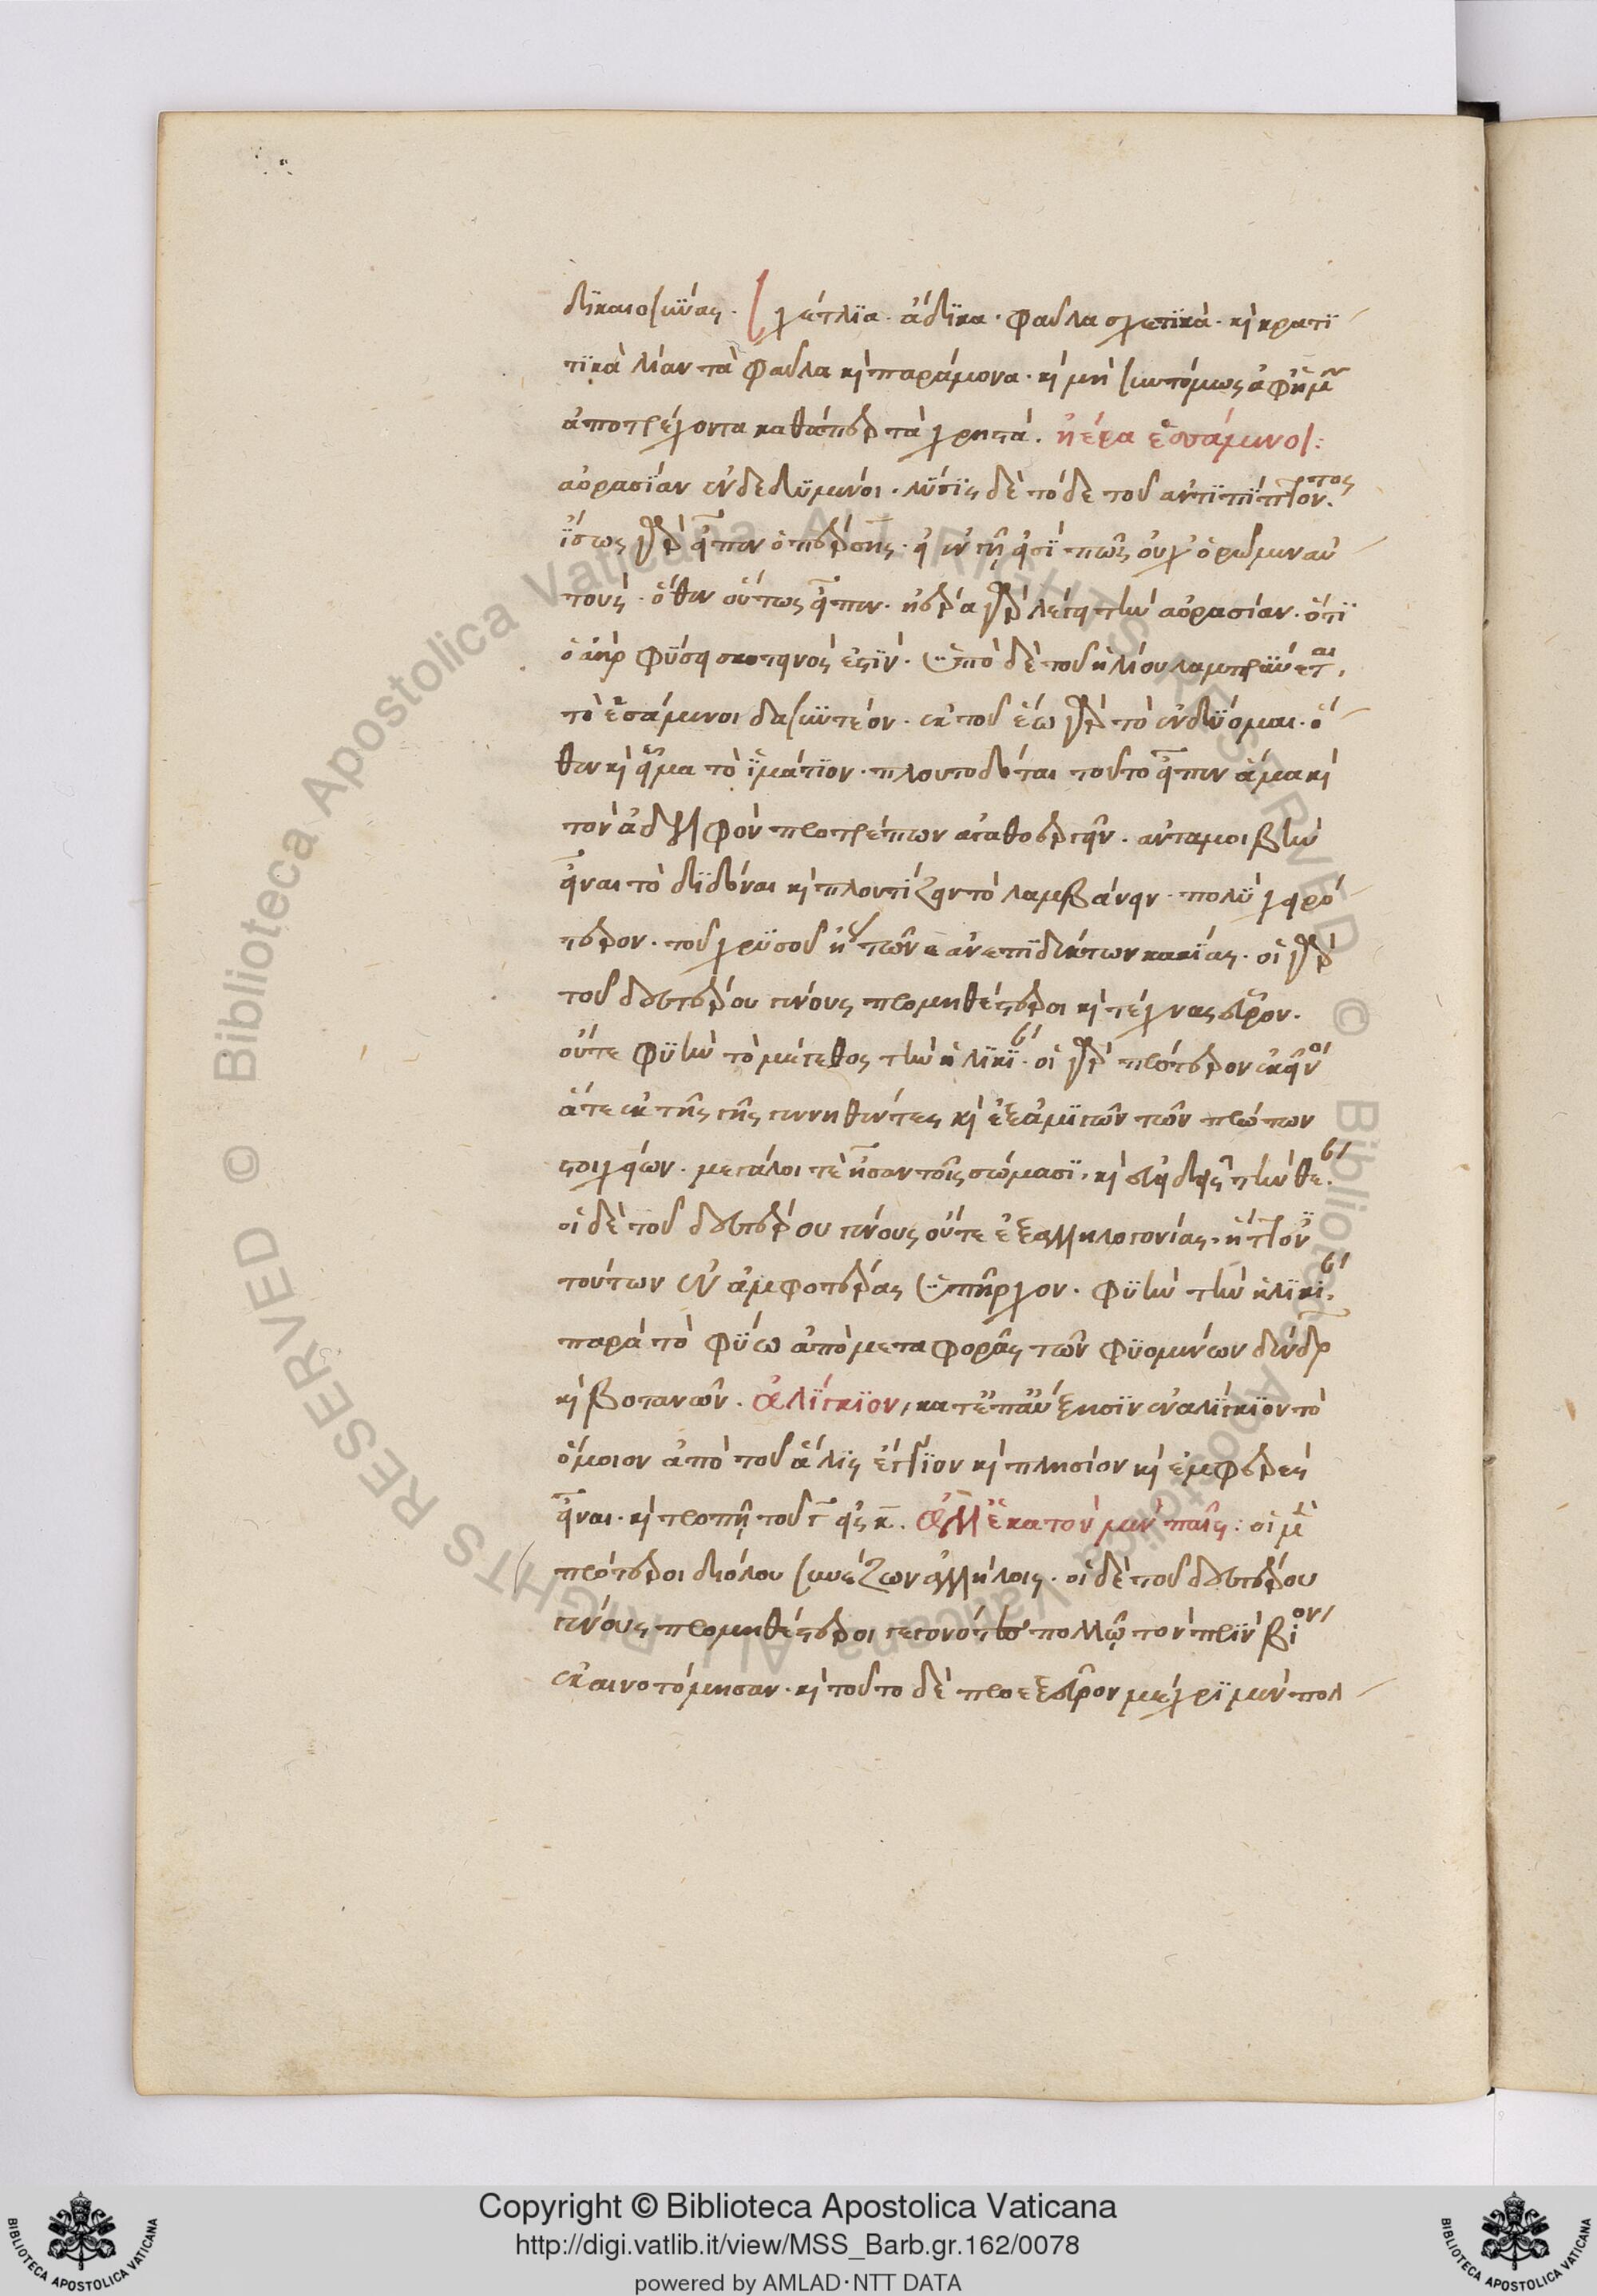 δϊκαιοσύνας. σχέτλϊα. ἄδϊκα. φαῦλα σχετϊκὰ. κὶ κρατϊ
τϊκὰ λίαν τὰ φαῦλα κὶ παράμονα. κὶ μὴ συντόμως ἀφ' ἡμῶν
ἀποτρέχοντα καθάπερ τὰ χρηστά. ἠέρα ἑσσάμενοι:
αὀρασΐαν ἐνδεδυμένοι. λύσϊς δὲ τόδε τοῦ αντϊπΐπτοντος.
ἴσως γὰρ εἶπεν ὁ πέρσης. εἰ ἐν γῇ εἰσΐ πῶς οὐχ ὁρῶμεν αὐ
τούς. ὅθεν οὕτως εἶπεν. ἠέρα γὰρ λέγει τὴν αὀρασίαν. ὅτϊ
ὁ ἀὴρ φύσει σκοτεινός ἐστΐν. ὑπὸ δὲ τοῦ ἡλίου λαμπρΰνεται.
τὸ ἑσσάμενοι δασυντέον. ἐκ τοῦ ἕω γὰρ τὸ ἐνδύομαι. ὅ
θεν κὶ εἷμα τὸ ἱμάτϊον. πλουτοδόται τοῦτο εἶπεν ἅμα κὶ
τὸν ἀδελφὸν προτρέπων αγαθοεργεῖν. ανταμοιβὴν
εἶναι τὸ δϊδόναι κὶ πλουτίζειν τὸ λαμβάνειν. πολὺ χειρό
τερον. τοῦ χρυσοῦ ἢ τῶν ανεπϊδέκτων κακΐας. οἱ γὰρ
τοῦ δευτέρου γένους προμηθέστεροι κὶ τέχνας εὗρον.
οὔτε φυὴν τὸ μέγεθος τὴν ἡλϊκΐαν. οἱ γὰρ πρότερον ἐκεῖνοι
ἅτε ἐκ τῆς γῆς γεννηθέντες κὶ ἐξ ἀμϊγῶν τῶν πρώτων
στοιχείων. μεγάλοι τὲ ἦσαν τοῖς σώμασϊ. κὶ εὐειδεῖς τὴν θέαν.
οἱ δὲ τοῦ δευτέρου γένους οὔτε ἐξ αλληλογονίας. ἥττον
τούτων ἐν ἀμφοτέρας ὑπῆρχον. φυὴν τὴν ἡλϊκίαν.
παρὰ τὸ φύω ἀπὸ μεταφορᾶς τῶν φυομένων δένδρων
κὶ βοτανῶν. ἀλΐγκϊον, κατ' ἐπαύξησϊν ἐναλΐγκϊον τὸ
ὅμοιον ἀπὸ τοῦ ἅλις ἐγγΐον κὶ πλησίον κὶ ἐμφερὲς
εἶναι. κὶ τροπῇ τοῦ γ εἰς κ. ἀλλ' ἑκατὸν μὲν παῖς: οἱ μὲν
πρότεροι διόλου συνέζων ἀλλήλοις. οἱ δὲ τοῦ δευτέρου
γένους προμηθέστεροι γεγονότες πολλῷ τὸν πρὶν βίον
ἐκαινοτόμησαν. κὶ τοῦτο δὲ προεξεῦρον μέχρϊ μὲν πολ
Copyright © Biblioteca Apostolica Vaticana
http://digi.vatlib.it/view/MSS_Barb.gr.162/0078
powered by AMLAD·NTT DATA